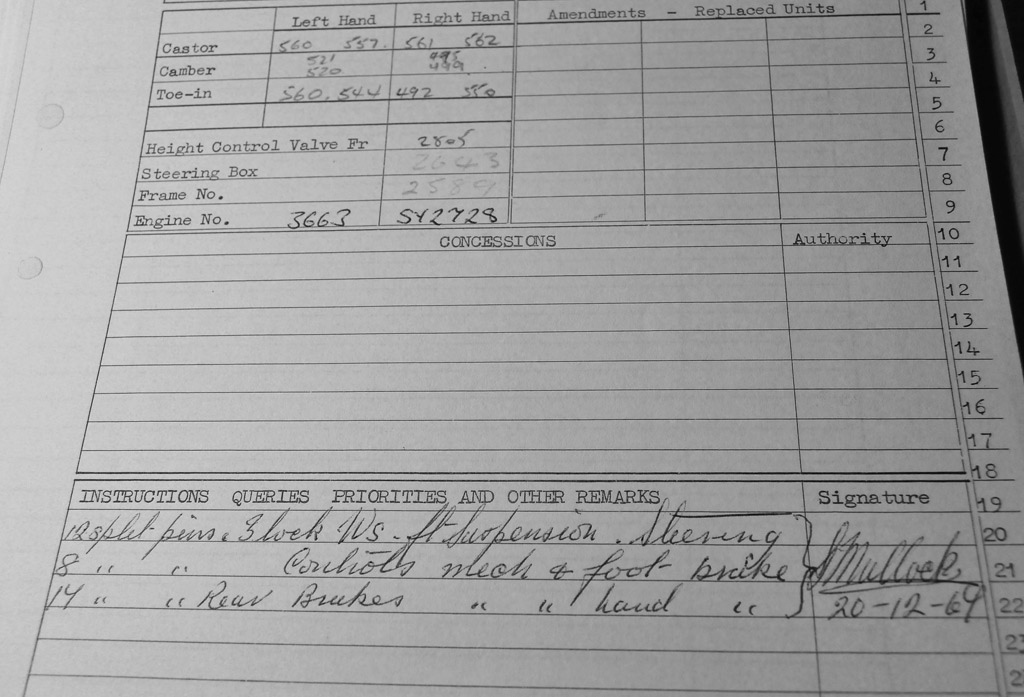 Left Hand Right Hand Amendments - Replaced Units 1
2
Castor 560 557. 561 562 3
Camber 521 520 495 499 4
Toe-in 560.544 492 550 5
6
Height Control Valve Fr 2805 7
Steering Box 2643 8
Frame No. 2589 9
Engine No. 3663 SY2728
CONCESSIONS Authority 10
11
12
13
14
15
16
17
18
INSTRUCTIONS QUERIES PRIORITIES AND OTHER REMARKS Signature 19
12 split pins. 3 lock Ws. ft Suspension. Steering 20
8 " " Controls mech & foot brake Mullock 21
14 " " Rear Brakes " " hand " 20-12-69 22
23
2